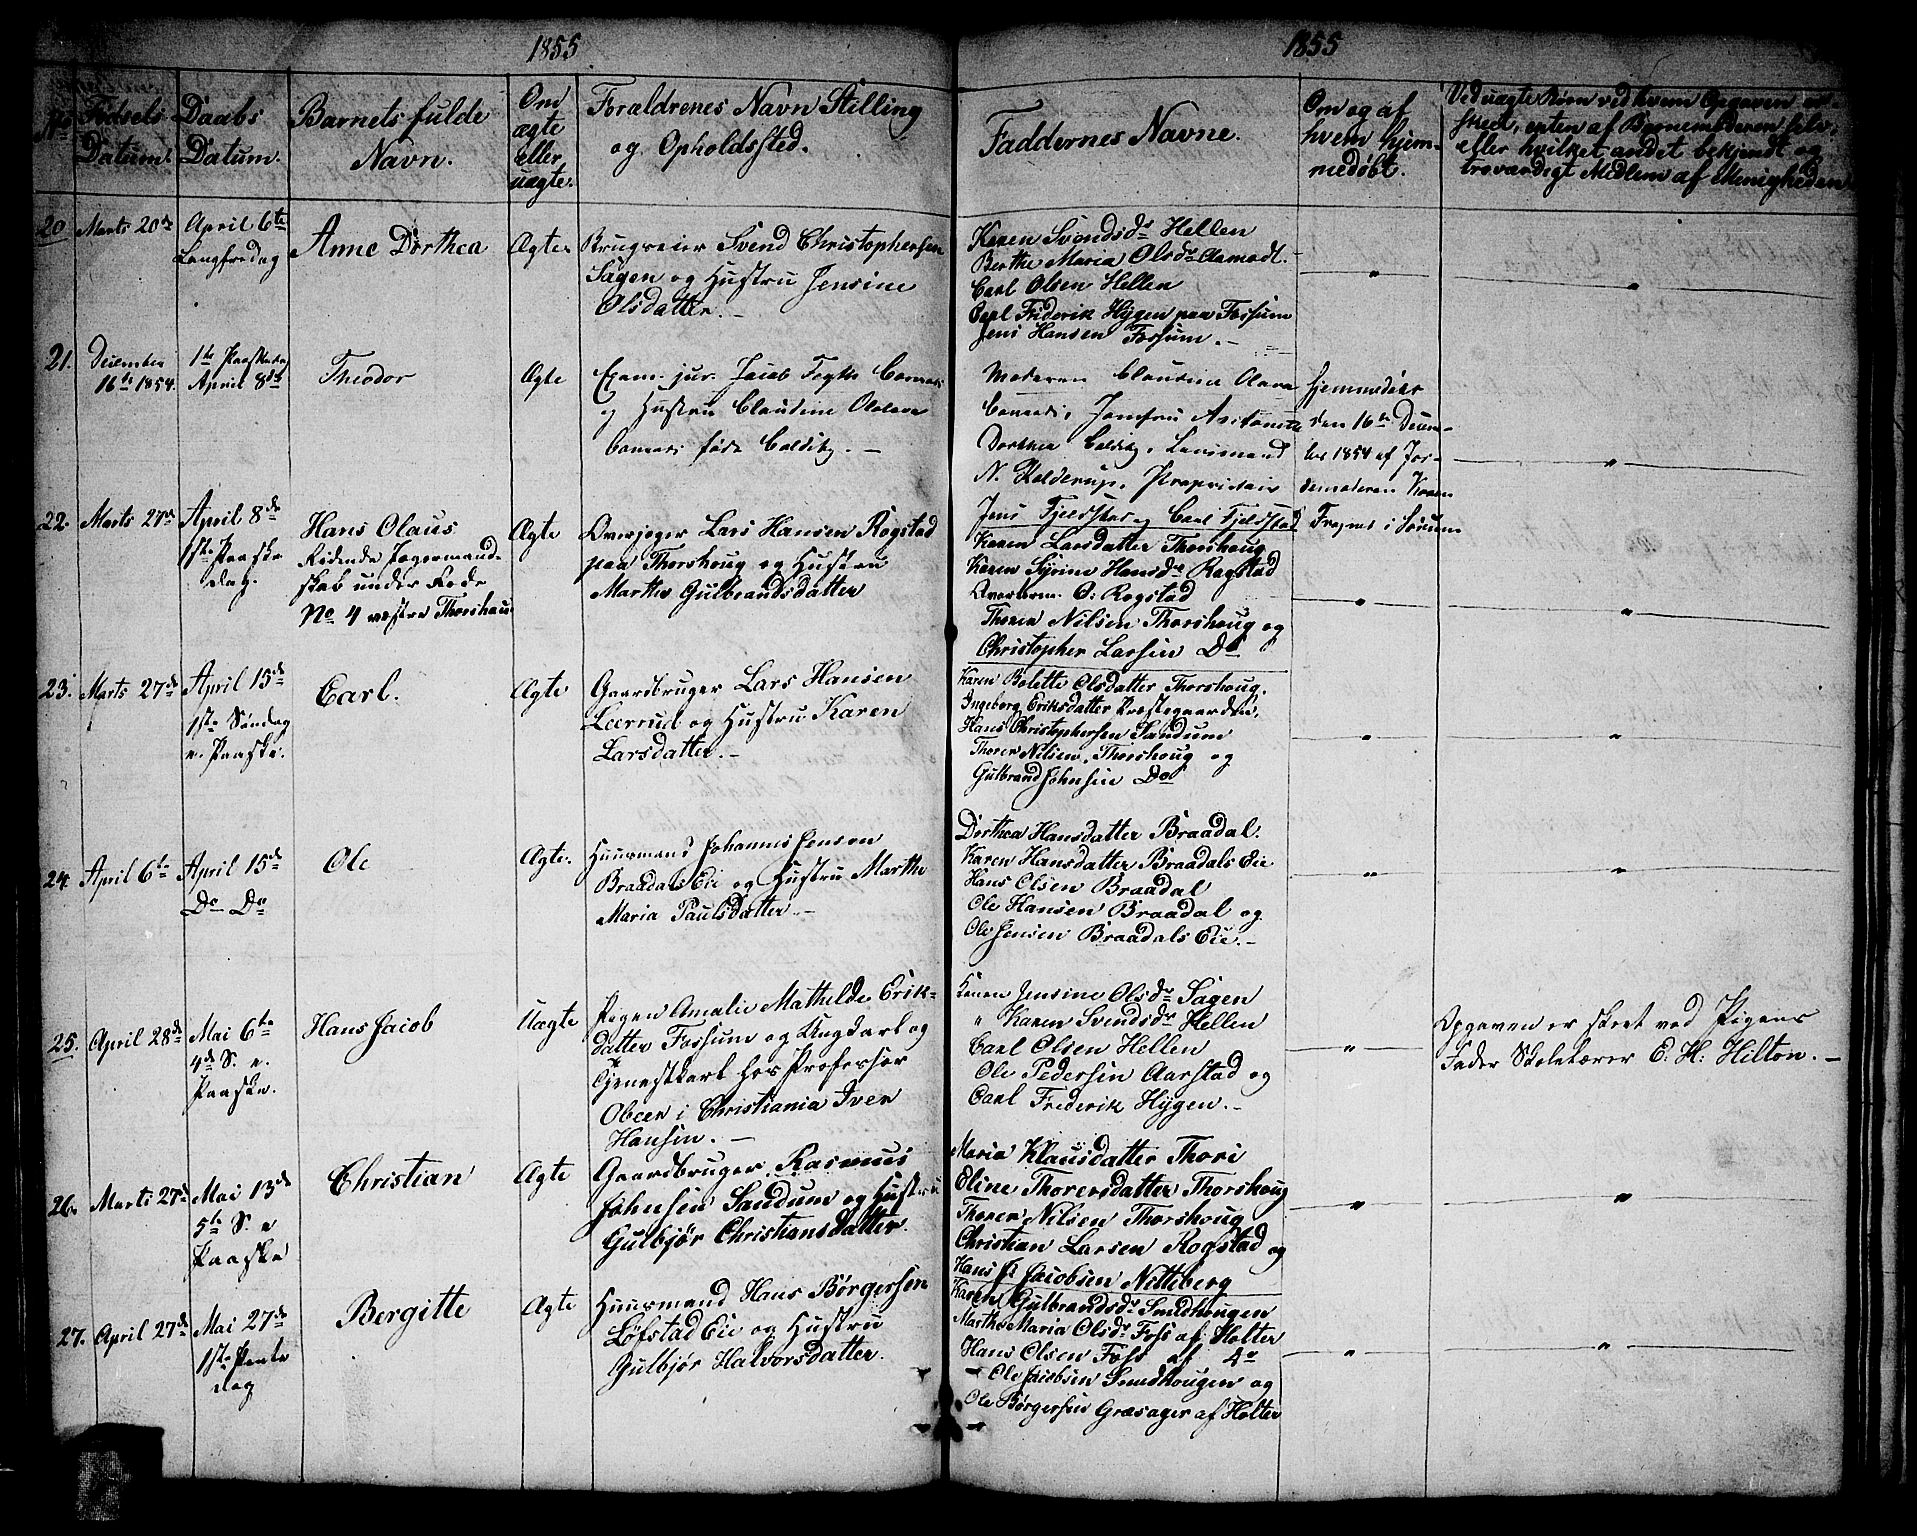 1855
1855
No
Fødsels Datum.
Daabs Datum.
Barnets fulde Navn.
Om ægte eller uægte.
Foraldrenes Navn Stilling og Opholdsted.
Faddernes Navne.
Om og af hvem hjemmedøbt.
Ved uægte Børn ved hvem Opgaven er skeet, enten af Barnemoderen selv, eller hvilket andet bekjendt og troværdigt Medlem af Menigheden
20
Marts 20de
April 6te
Langfredag
Anne Dorthea
Ægte
Brugseier Svend Christophersen
Sagen og Hustru Jensine
Olsdatter.
Karen Svendsdr Hellen
Berthe Maria Olsdr Aamodt
Carl Olsen Hellen
Carl Friderik Hygen paa Fossum
Jens Hansen Fossum.
21.
December
16de 1854.
1ste Paaskedag
April 8de
Theodor
Ægte
Exam. jur. Jacob
og Hustru Claudine
født Colditz.
Moderen Claudine Olava
Jomfru Antonette
Dorthea Colditz, Lensmand
N. Holderup, Proprietair
Jens Fjeldstad og Carl Fjeldstad
Hjemmedøbt
den 16de Decem-
ber 1854 af Jor-
demoderen Karen
i Sørum
22.
Marts 27de
April 8de
1ste Paaske
dag.
Hans Olaus
Ridende Jægermand-
skab under Rode
No 4 vestre Thorshaug
Ægte
Overjeger Lars Hansen Rogstad
paa Thorshoug og Hustru
Marthe Gulbrandsdatter
Karen Larsdatter Thorshoug
Karen Syrine Hansdr Rogstad
O. Rogstad
Thorer Nilsen Thorshoug og
Christopher Larsen Do
23.
Marts 27de
April 15de
1ste Søndag
e. Paaske.
Carl.
Ægte
Gaardbruger Lars Hansen
Leerrud og Hustru Karen
Larsdatter.
Karen Bolette Olsdatter Thorshoug.
Ingeborg Eriksdatter Præstegaarden,
Hans Christophersen Sandum
Thorer Nilsen, Thorshoug og
Gulbrand Johnsen Do
24.
April 6te
April 15de
Do Do
Ole
Ægte.
Huusmand Johannis Jensen
Braadals Eie og Hustru Marthe
Maria Paulsdatter.
Dorthea Hansdatter Braadal.
Karen Hansdatter Braadals Eie
Hans Olsen Braadal
Ole Hansen Braadal og
Ole Jensen Braadals Eie.
25.
April 28de
Mai 6te
4de S. e.
Paaske.
Hans Jacob
Uægte
Pigen Amalie Mathilde Erik-
datter Fossum og Ungkarl og
Tjenestkarl hos Professor
Obcen i Christiania Iver
Hansen.
Konen Jensine Olsdr Sagen
" Karen Svendsdr Hellen
Carl Olsen Hellen
Ole Pedersen Aarstad og
Carl Frederik Hygen.
Opgaven er skeet ved Pigens
Fader Skolelærer E. H. Hilton.
26.
Marts 27de
Mai 13de
5te S. e
Paaske
Christian
Ægte
Gaardbruger Rasmus
Johnsen Sandum og Hustru
Gulbjør Christiansdatter.
Maria Klausdatter Thori
Eline Thorersdatter Thorshoug
Thorer Nilsen Thorshoug
Christian Larsen Rogstad og
Hans Jacobsen Nitteberg
27.
April 27de
Mai 27de
1ste Pintse
dag
Bergitte
Ægte
Huusmand Hans Børgersen
Løfstad Eie og Hustru
Gulbjør Halvorsdatter.
Karen Gulbrandsdr Smedhougen
Marthe Maria Olsdr Foss af Holter
Hans Olsen Foss af do
Ole Jacobsen Smedhougen og
Ole Børgersen Græsager af Holter